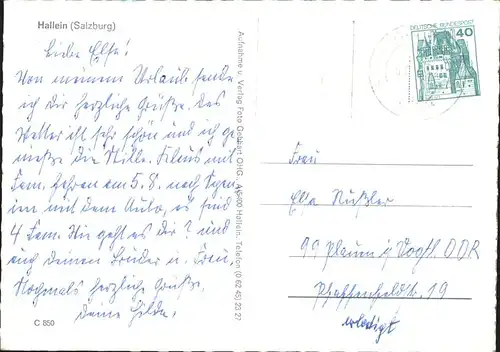 Hallein (Salzburg)
Liebe Else!
Von meinem Urlaub sende
ich dir herzliche Grüße. Das
Wetter ist sehr schön und ich ge
nieße die Stille. mit
Fam. fahren am 5. 8. nach
mit dem Auto, es sind
4 Fam. Wie geht es dir? und
auch deinem Bruder u. Frau.
Nochmals herzliche Grüße,
deine Hilde.
C 850
Aufnahme u. Verlag Foto Gebhart OHG., A-5400 Hallein, Telefon (0 62 45) 23 27
DEUTSCHE BUNDESPOST
40
Frau
Else Rüßler
99 Plauen i/Vogtl. DDR
Pfaffenfeldstr. 19
erledigt